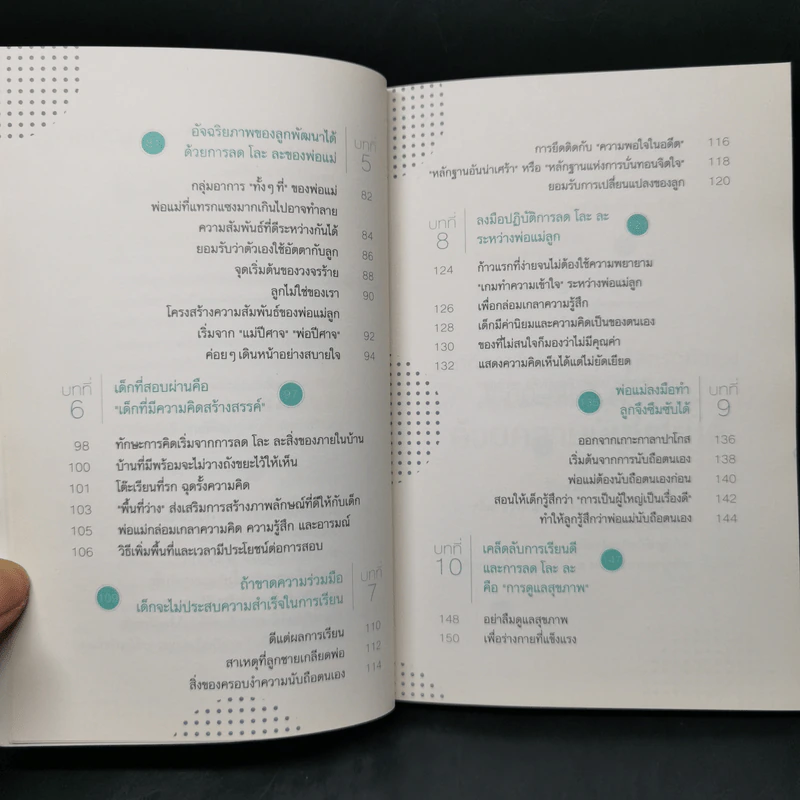 บทที่ 5
อัจฉริยภาพของลูกพัฒนาได้
ด้วยการลด โละ ละของพ่อแม่
กลุ่มอาการ "ทั้งๆ ที่" ของพ่อแม่ 82
พ่อแม่ที่แทรกแซงมากเกินไปอาจทำลาย
ความสัมพันธ์ที่ดีระหว่างกันได้ 84
ยอมรับว่าตัวเองใช้อัตตากับลูก 86
จุดเริ่มต้นของวงจรร้าย 88
ลูกไม่ใช่ของเรา 90
โครงสร้างความสัมพันธ์ของพ่อแม่ลูก
เริ่มจาก "แม่ปีศาจ" "พ่อปีศาจ" 92
ค่อยๆ เดินหน้าอย่างสบายใจ 94
บทที่ 6
เด็กที่สอบผ่านคือ
"เด็กที่มีความคิดสร้างสรรค์"
98 ทักษะการคิดเริ่มจากการลด โละ ละสิ่งของภายในบ้าน
100 บ้านที่มีพร้อมจะไม่วางถังขยะไว้ให้เห็น
101 โต๊ะเรียนที่รก ฉุดรั้งความคิด
103 "พื้นที่ว่าง" ส่งเสริมการสร้างภาพลักษณ์ที่ดีให้กับเด็ก
105 พ่อแม่กล่อมเกลาความคิด ความรู้สึก และอารมณ์
106 วิธีเพิ่มพื้นที่และเวลามีประโยชน์ต่อการสอบ
บทที่ 7
ถ้าขาดความร่วมมือ
เด็กจะไม่ประสบความสำเร็จในการเรียน
ดีแต่ผลการเรียน 110
สาเหตุที่ลูกชายเกลียดพ่อ 112
สิ่งของครอบงำความนับถือตนเอง 114
การยึดติดกับ "ความพอใจในอดีต" 116
"หลักฐานอันน่าเศร้า" หรือ "หลักฐานแห่งการบั่นทอนจิตใจ" 118
ยอมรับการเปลี่ยนแปลงของลูก 120
บทที่ 8
ลงมือปฏิบัติการลด โละ ละ
ระหว่างพ่อแม่ลูก
124 ก้าวแรกที่ง่ายจนไม่ต้องใช้ความพยายาม
"เกมทำความเข้าใจ" ระหว่างพ่อแม่ลูก
126 เพื่อกล่อมเกลาความรู้สึก
128 เด็กมีค่านิยมและความคิดเป็นของตนเอง
130 ของที่ไม่สนใจก็มองว่าไม่มีคุณค่า
132 แสดงความคิดเห็นได้แต่ไม่ยัดเยียด
บทที่ 9
พ่อแม่ลงมือทำ
ลูกจึงซึมซับได้
ออกจากเกาะกาลาปาโกส 136
เริ่มต้นจากการนับถือตนเอง 138
พ่อแม่ต้องนับถือตนเองก่อน 140
สอนให้เด็กรู้สึกว่า "การเป็นผู้ใหญ่เป็นเรื่องดี" 142
ทำให้ลูกรู้สึกว่าพ่อแม่นับถือตนเอง 144
บทที่ 10
เคล็ดลับการเรียนดี
และการลด โละ ละ
คือ "การดูแลสุขภาพ"
148 อย่าลืมดูแลสุขภาพ
150 เพื่อร่างกายที่แข็งแรง